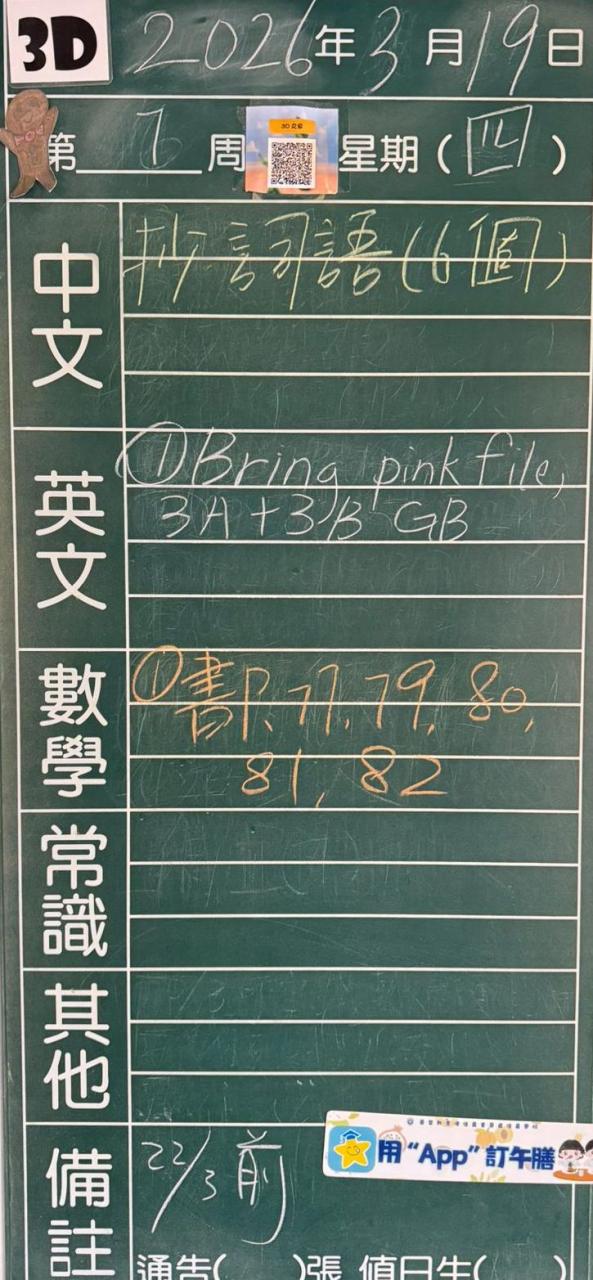 3D 2026年3月19日
第1周 星期(四)
中文
抄詞語(6個)
英文
①Bring pink file,
3A+3B GB
數學
①書P.77,79,80,
81,82
常識
其他
備註
22/3前
用“App”訂午膳
通告( )張 值日生( )